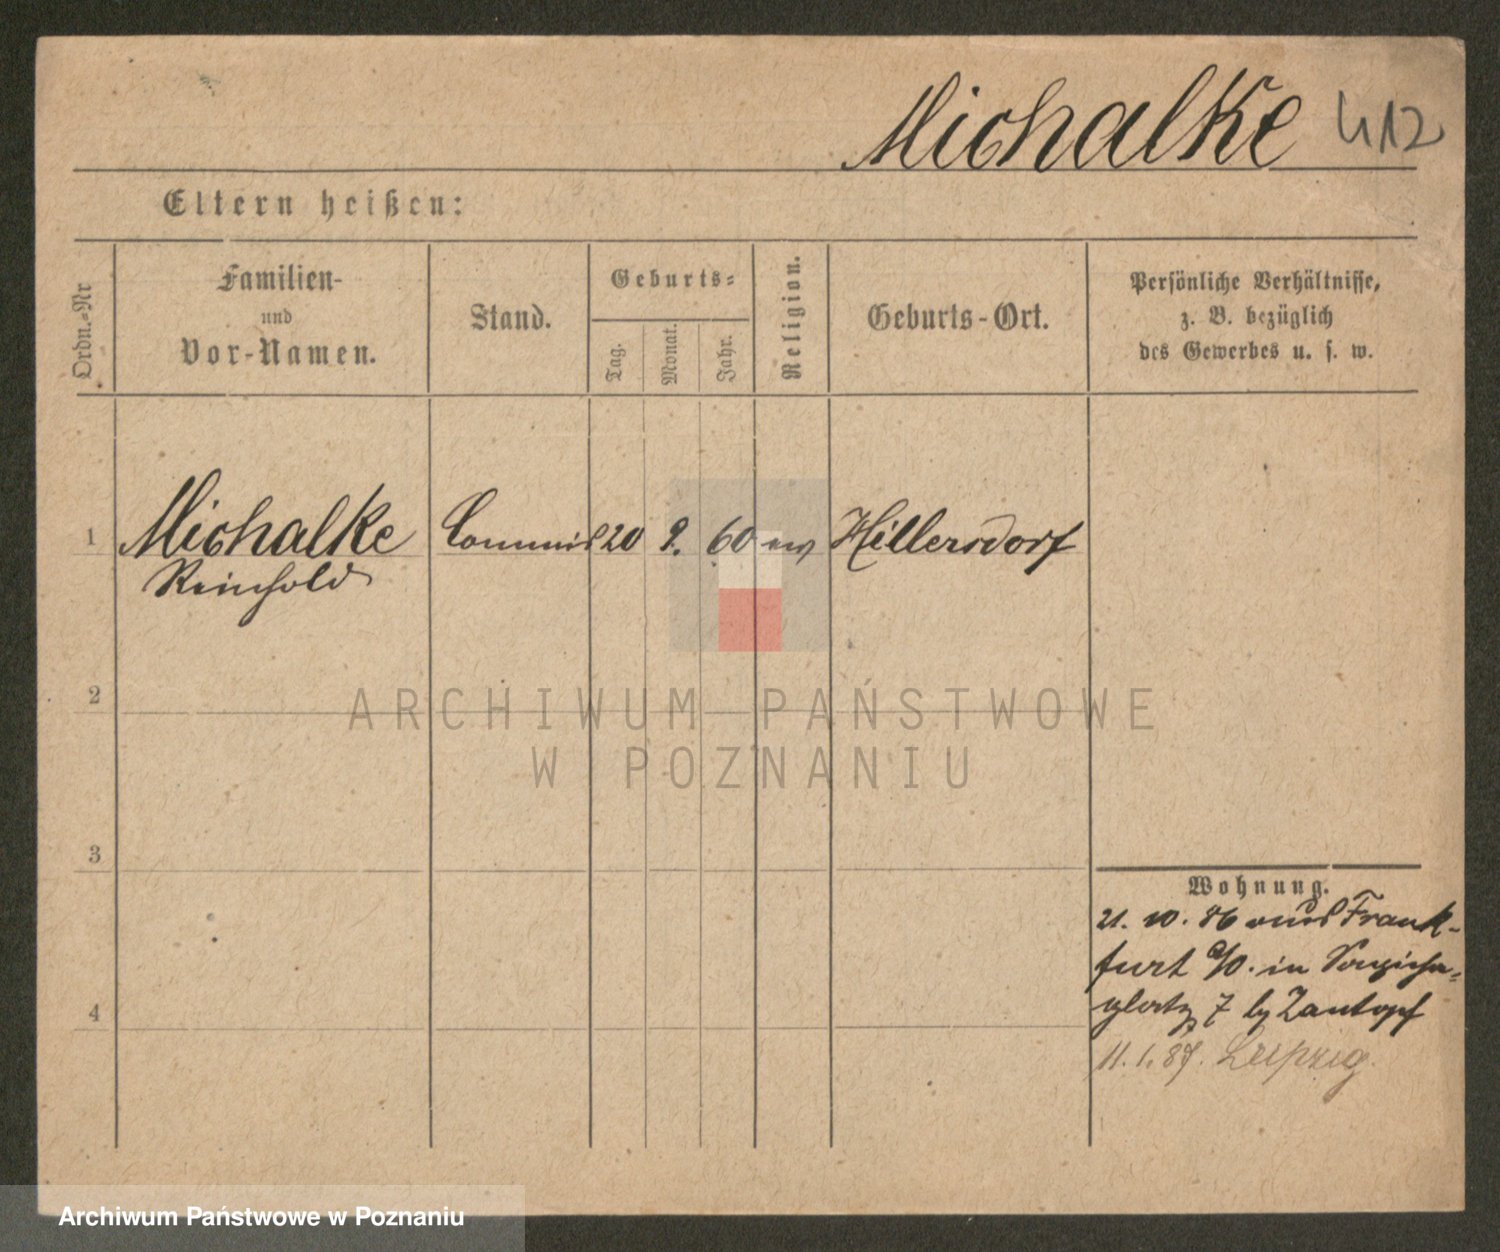 Michalke 412
Eltern heißen:
Ordn.-Nr
Familien-
und
Vor-Namen.
Stand.
Geburts-
Tag.
Monat.
Jahr.
Religion.
Geburts-Ort.
Persönliche Verhältnisse,
z. B. bezüglich
des Gewerbes u. s. w.
1 Michalke Commis 20 9. 60 ev Hillersdorf
Reinhold
2
ARCHIWUM PAŃSTWOWE
W POZNANIU
3
Wohnung.
21. 10. 86 aus Frank-
furt a/O. in
platz 7 by Zantopf
4
11. 1. 87. Leipzig.
Archiwum Państwowe w Poznaniu